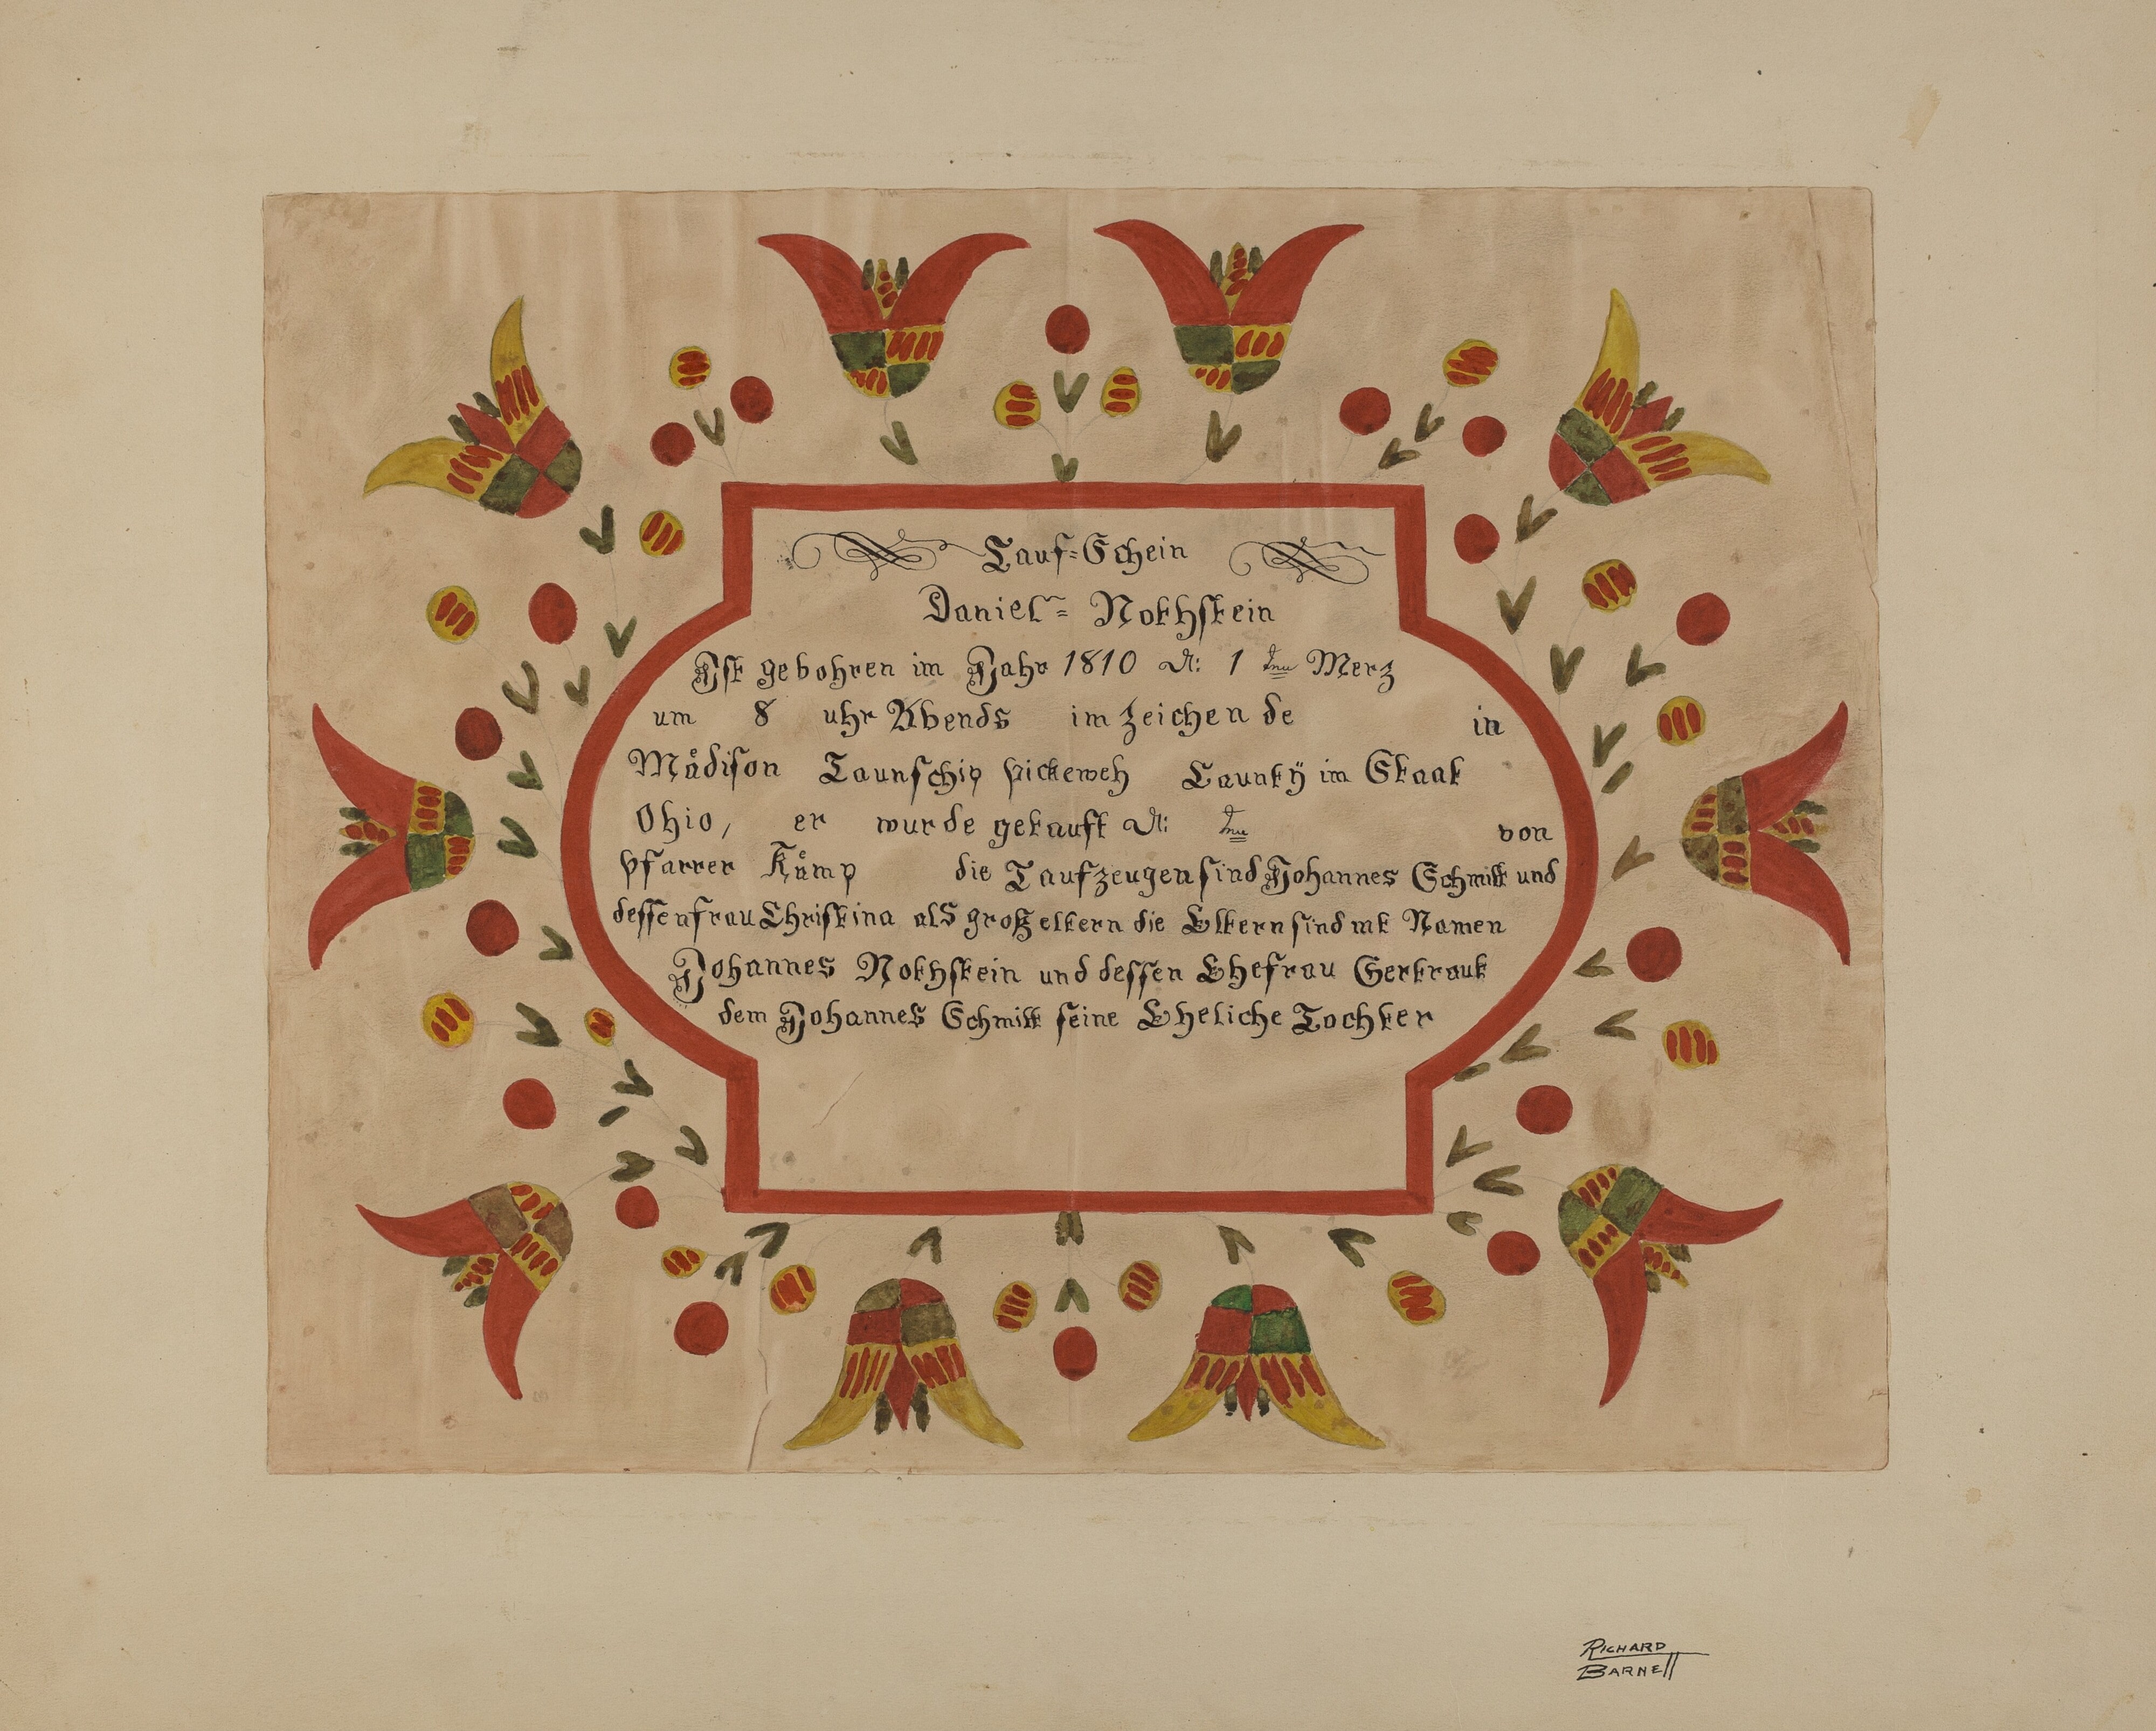 Tauf=Schein
Daniel= Nothstein
Ist gebohren im Jahr 1810 d: 1 tnu Merz
um 8 uhr Abends im Zeichen de in
Mådison Taunschip pickeweh Cauntÿ im Staat
Ohio, er wurde getauft d: tnu von
pfarrer Kåmp die Taufzeugen sind Johannes Schmitt und
dessen frau Christina als groß eltern die Eltern sind mt Namen
Johannes Nothstein und dessen Ehefrau Gertraut
dem Johannes Schmitt seine Eheliche Tochter
RICHARD
BARNETT